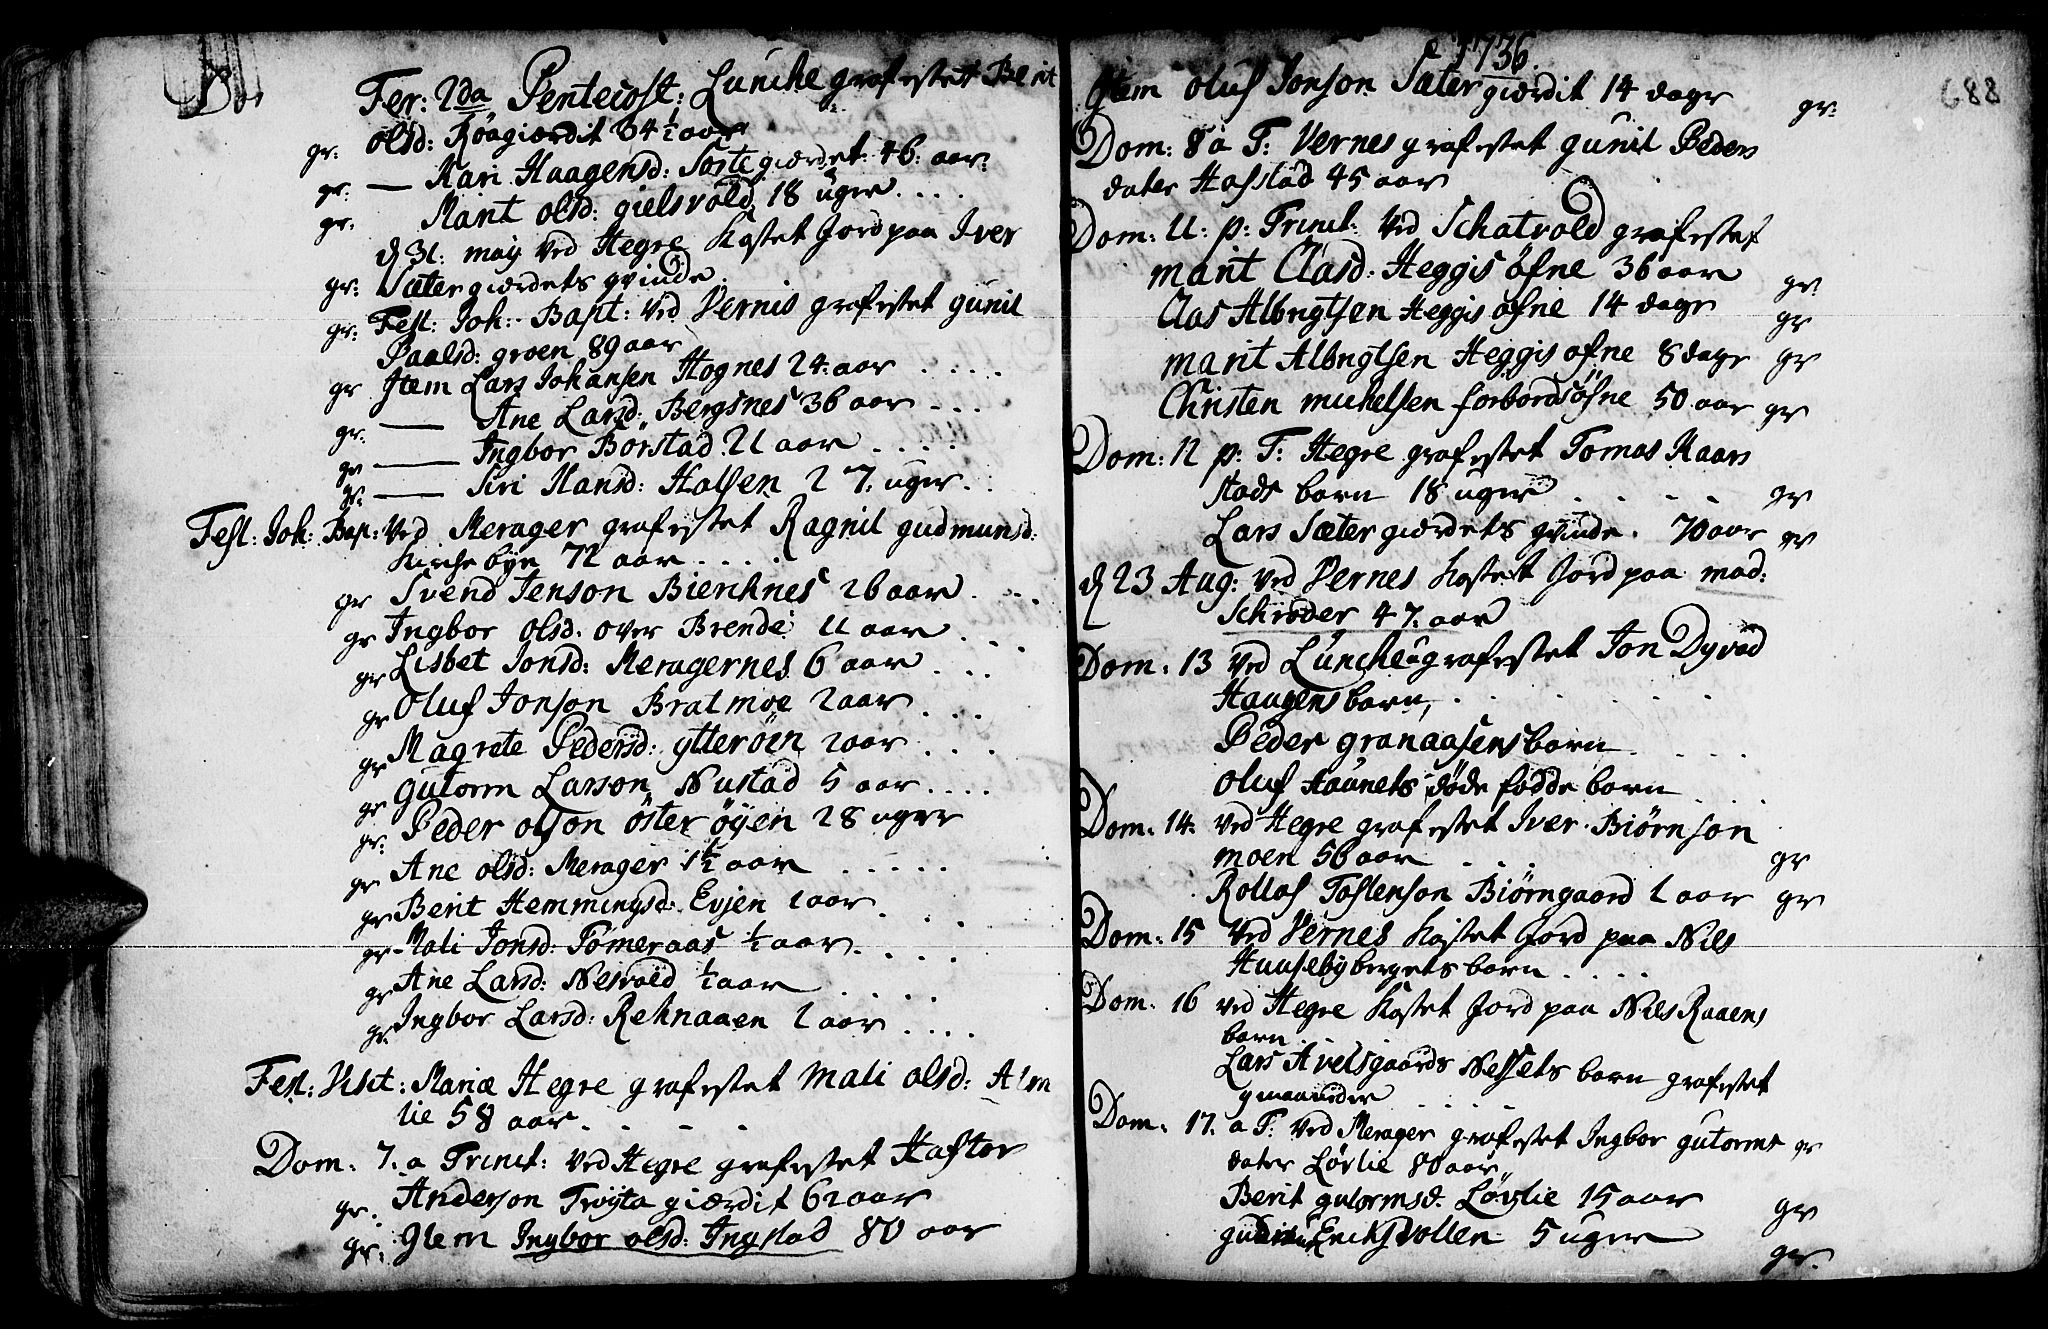 Fer: 2da Pentecost: Lunche grafestet Berit
gr: olsd: Röagiærdit 34 ½ aar
gr: — Kari Haagensd: Sortegiærdet 46: aar:
gr. Marit olsd: gielsvold 18 uger....
d 31: may ved Hegre Kastet Jord paa Iver
gr: Sætergiærdets qvinde.
gr: Fest: Joh: Bapt: ved Vernis grafestet gunil
Paalsd: groen 89 aar
gr Jtem Lars Johansen Hognes 24: aar .....
gr: — Ane Larsd: Bergsnes 36 aar ...
gr — Ingbor Borstad 21 aar ....
gr. — Siri Hansd: Halsen 27. uger..
Fest: Joh: Bap: ved Merager grafestet Ragnil gudmunsd:
Kirchebye 72 aar ....
gr Svend Jenson Bierchnes 26 aar ...
gr Ingbor olsd. over Brende 11 aar ...
gr Lisbet Jonsd: Meragernes 6 aar ...
gr Oluf Jonson Bratmoe 2 aar ...
gr Magrete Pedersd: ytterøen 2 aar ...
gr gutorm Larson Nustad 5 aar ....
gr. Peder olson österöyen 28 uger
gr Ane olsd: Merager 1½ aar .....
gr Berit Hemmingsd. Evjen 2 aar ...
gr Mali Jonsd: Tomeraas ½ aar ....
gr Ane Larsd: Nesvold ½ aar ....
gr. Ingbor Larsd: Rehnaaen 2 aar ....
Fest: Visit: Mariæ Hegre grafestet Mali olsd: Alm
lie 58 aar ....
Dom. 7. a Trinit: ved Hegre grafestet Haftor
gr. Anderson Trøytagiærdit 62 aar
gr. Jtem Ingbor olsd: Ingstad 80 aar
1736.
688
Jtem oluf Jonson Sætergiærdit 14 dage gr:
Dom: 8 a T: Vernes grafestet gunil Peders
dater Hofstad 45 aar
Dom: 11. p: Trinit: ved Schatvold grafestet
marit Clasd: Heggisøfne 36 aar gr.
Clas Albrigtsen Heggisøfne 14 dage gr
marit Albrigtsen Heggisøfne 8 dage gr
Christen michelsen forbordsøfne 50 aar gr
Dom: 12 p: T: Hegre grafestet Tomas Kaars
stads barn 18 uger .... gr
Lars Sætergiærdets qvinde. 70 aar gr
d 23 Aug: ved Vernes Kastet Jord paa mad:
Schrøder 47. aar
Dom. 13 ved Lunche grafestet Jon Dyvad
Haugens barn, .....
Peder granaasens barn ....
Oluf Haunets døde fødde barn ....
Dom. 14. ved Hegre grafestet Iver Biørnson
moen 56 aar .... gr
Rollaf Tostenson Biørngaard 2 aar gr
Dom: 15 ved Vernes Kastet Jord paa Nils
Haasebybergets barn ....
Dom. 16 ved Hegre Kastet Jord paa Nils Raaens
barn ..
Lars Avelsgaards Nessets barn grafestet
9 maaneder ....
Dom. 17. a T: ved Merager grafestet Ingbor gutorms gr
dater Løvlie 80 aar,
Berit gutormsd. Løvlie 15 aar gr
Ericksvollen 5 uger gr.